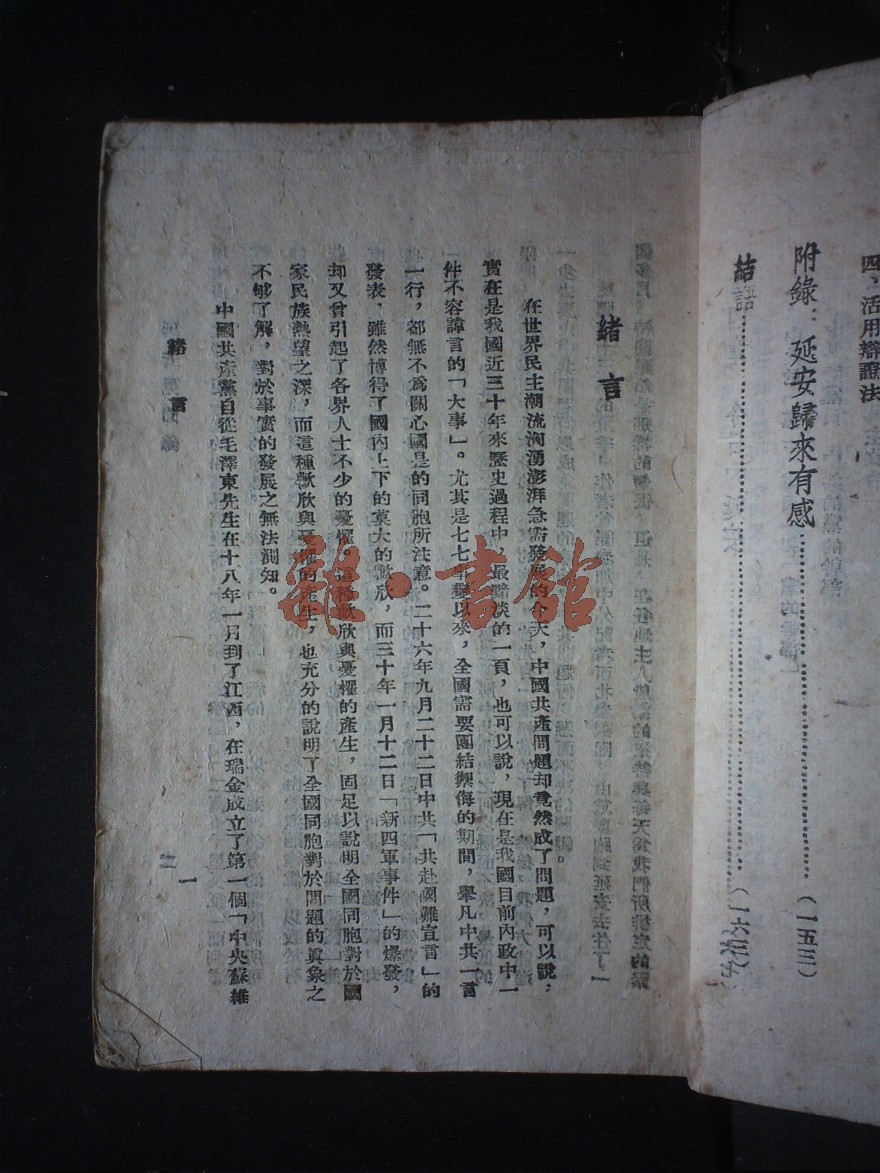 四、活用辯證法
附錄：延安歸來有感……………………（一五三）
結語……………………
緒言
在世界民主潮流洶湧澎湃急需發展的今天，中國共產問題却竟然成了問題，可以說，
實在是我國近三十年來歷史過程中，最難談的一頁，也可以說，現在是我國目前內政中一
件不容諱言的「大事」。尤其是七七事變以來，全國需要團結禦侮的期間，舉凡中共一言
一行，都無不爲關心國是的同胞所注意。二十六年九月二十二日中共「共赴國難宣言」的
發表，雖然博得了國內上下的莫大的歡欣，而三十年一月十二日「新四軍事件」的爆發，
却又曾引起了各界人士不少的憂懼，這種歡欣與憂懼的產生，固足以說明全國同胞對於國
家民族熱望之深，而這種歡欣與憂懼的產生，也充分的說明了全國同胞對於問題的眞象之
不够了解，對於事實的發展之無法測知。
中國共產黨自從毛澤東先生在十八年一月到了江西，在瑞金成立了第一個「中央蘇維
緒言
一
雜·書館